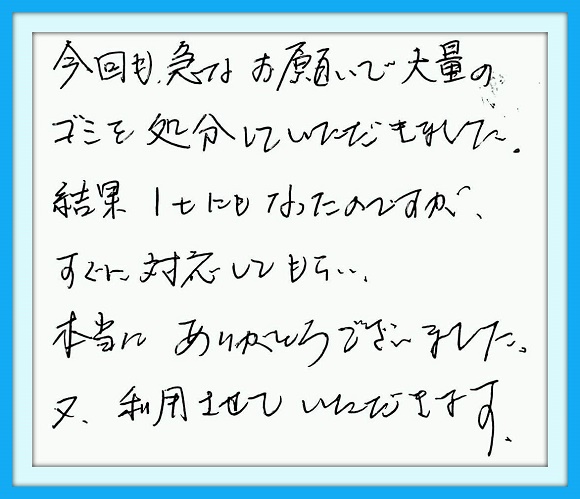 今回も、急なお願いで大量の
ゴミを処分していただきました。
結果 1tにもなったのですが、
すぐに対応してもらい、
本当に ありがとうございました。
又、利用させて いただきます。